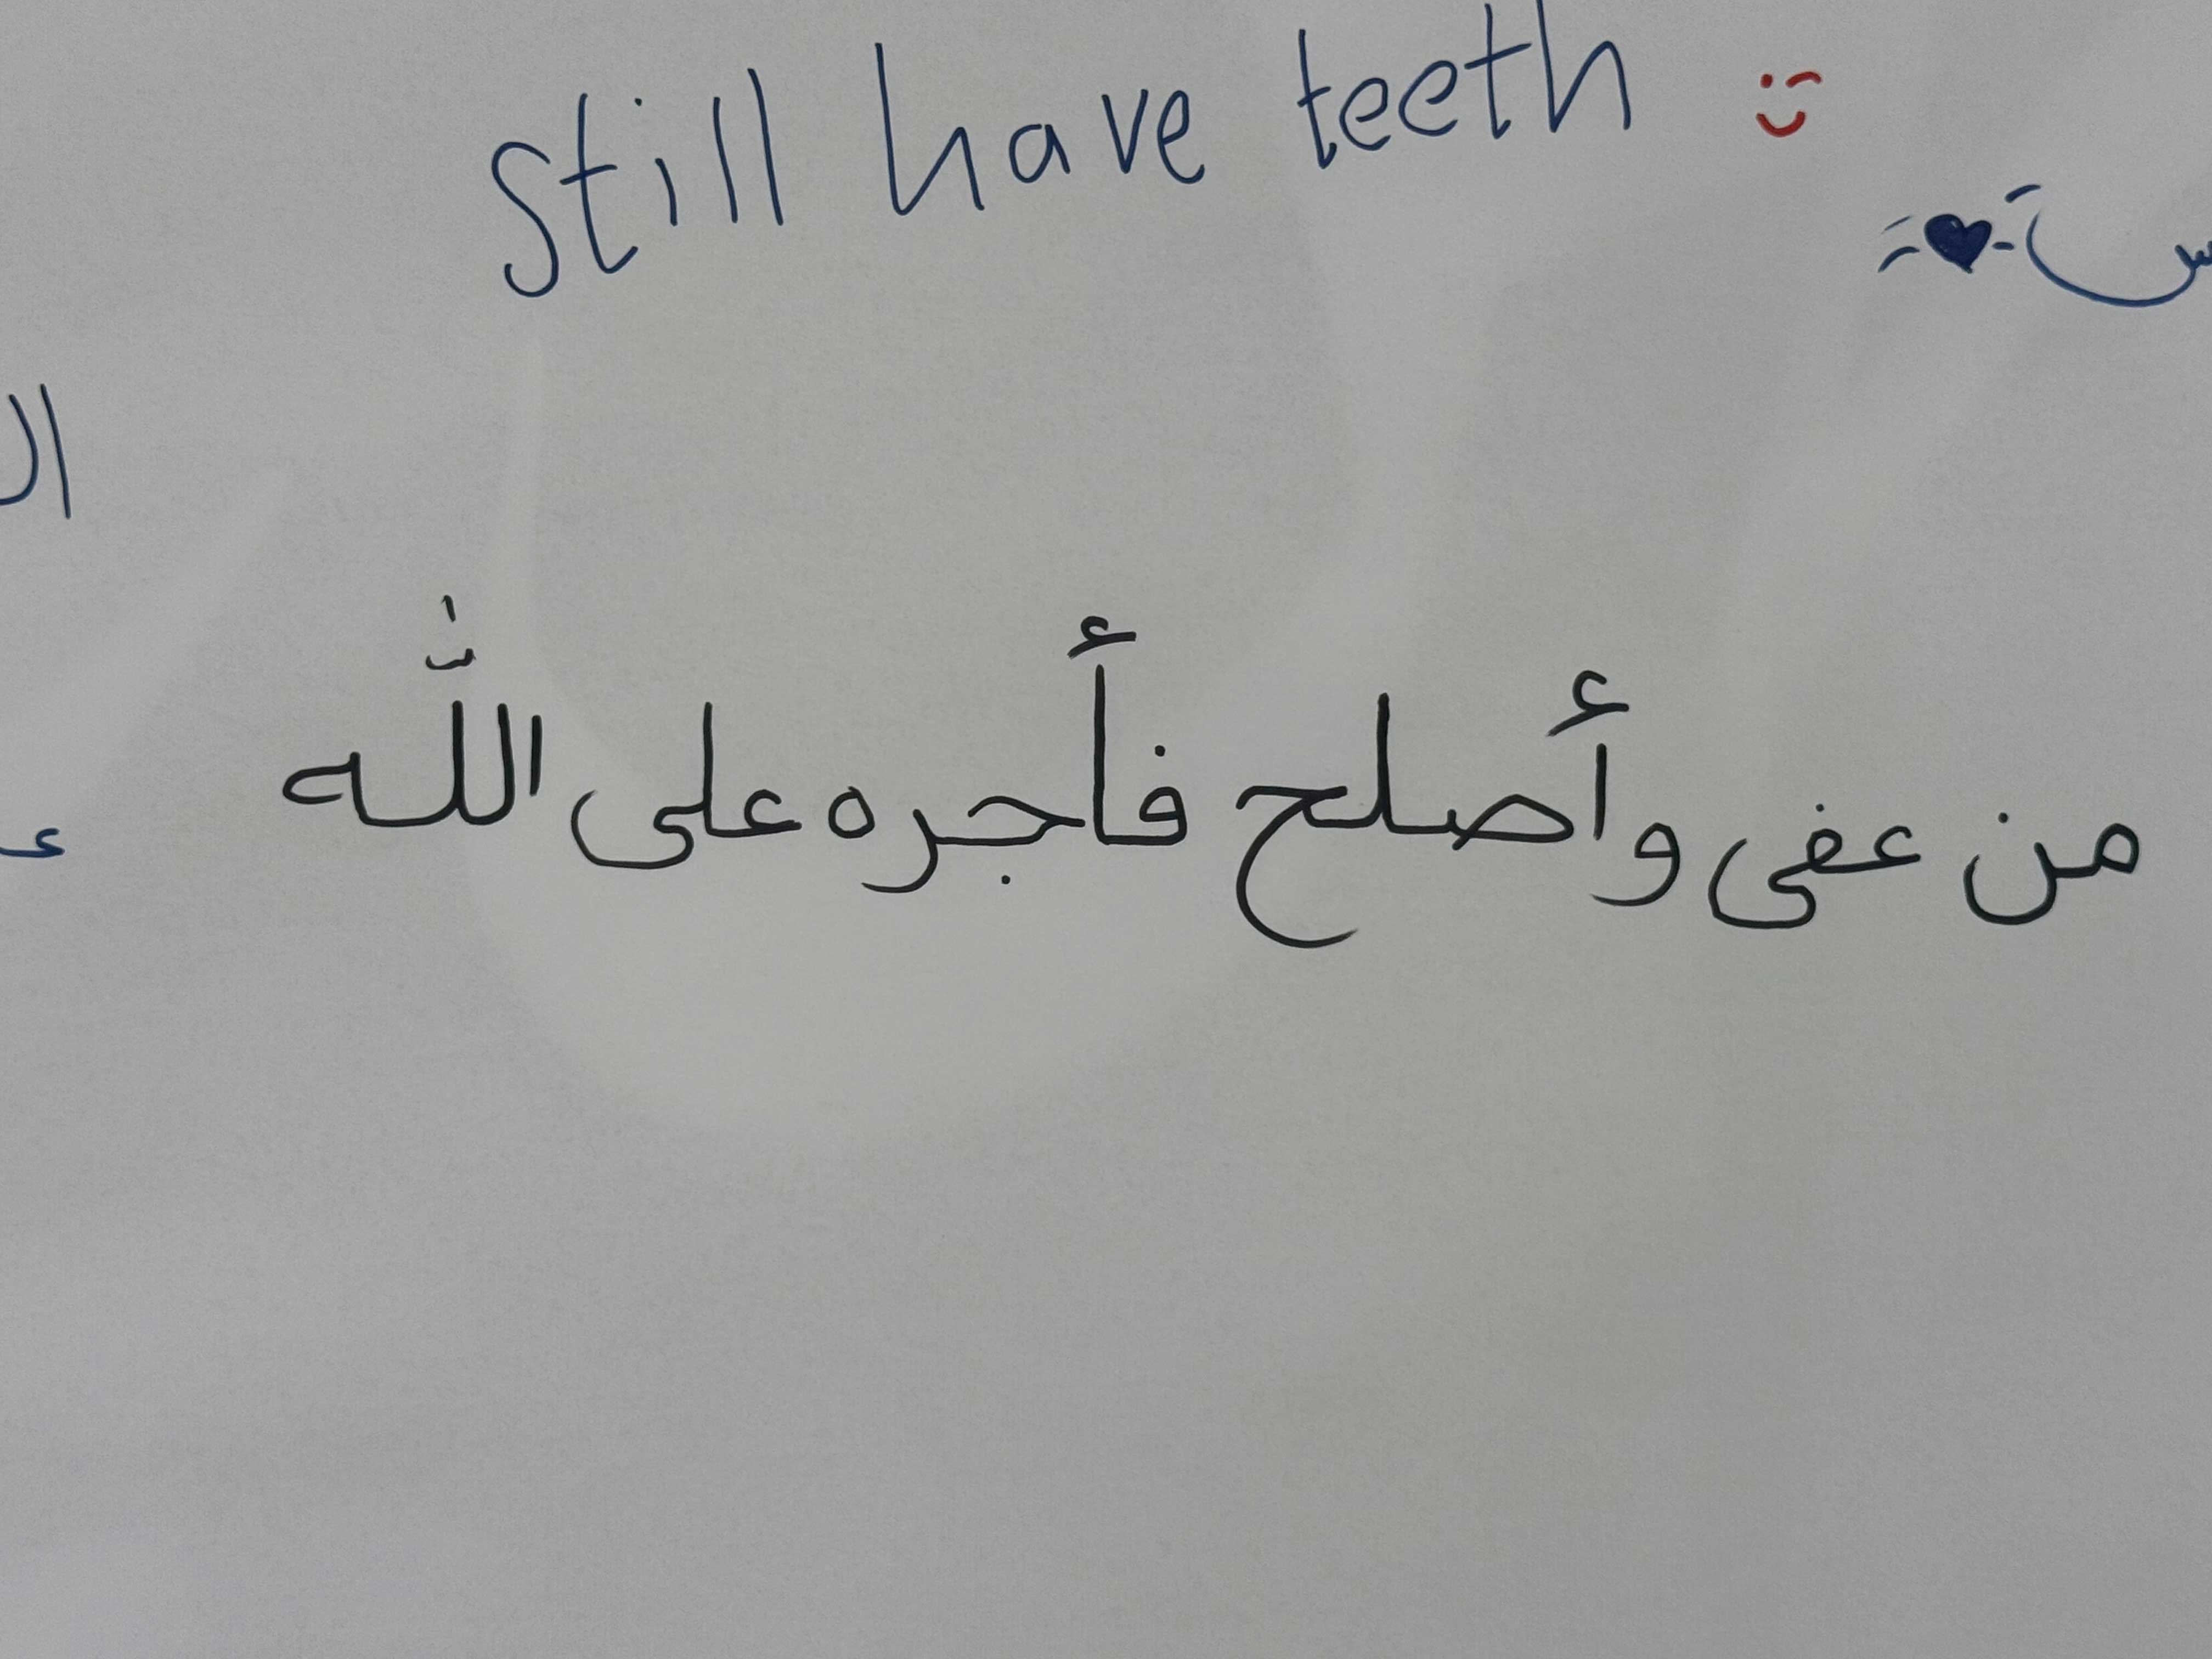 still have teeth
من عفى وأصلح فأجره على الله